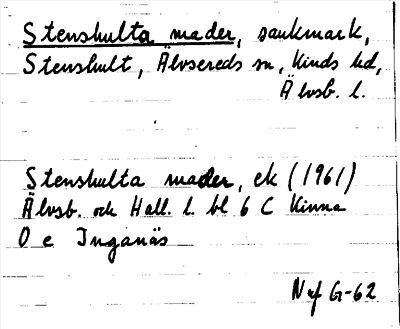 Stenshulta mader, sankmark,
Stenshult, Älvsereds sn, Kinds hd,
Älvsb. l.
Stenshulta mader, ek (1961)
Älvsb. och Hall. l. bl 6 C Kinna
O e Inganäs
Nyf G-62